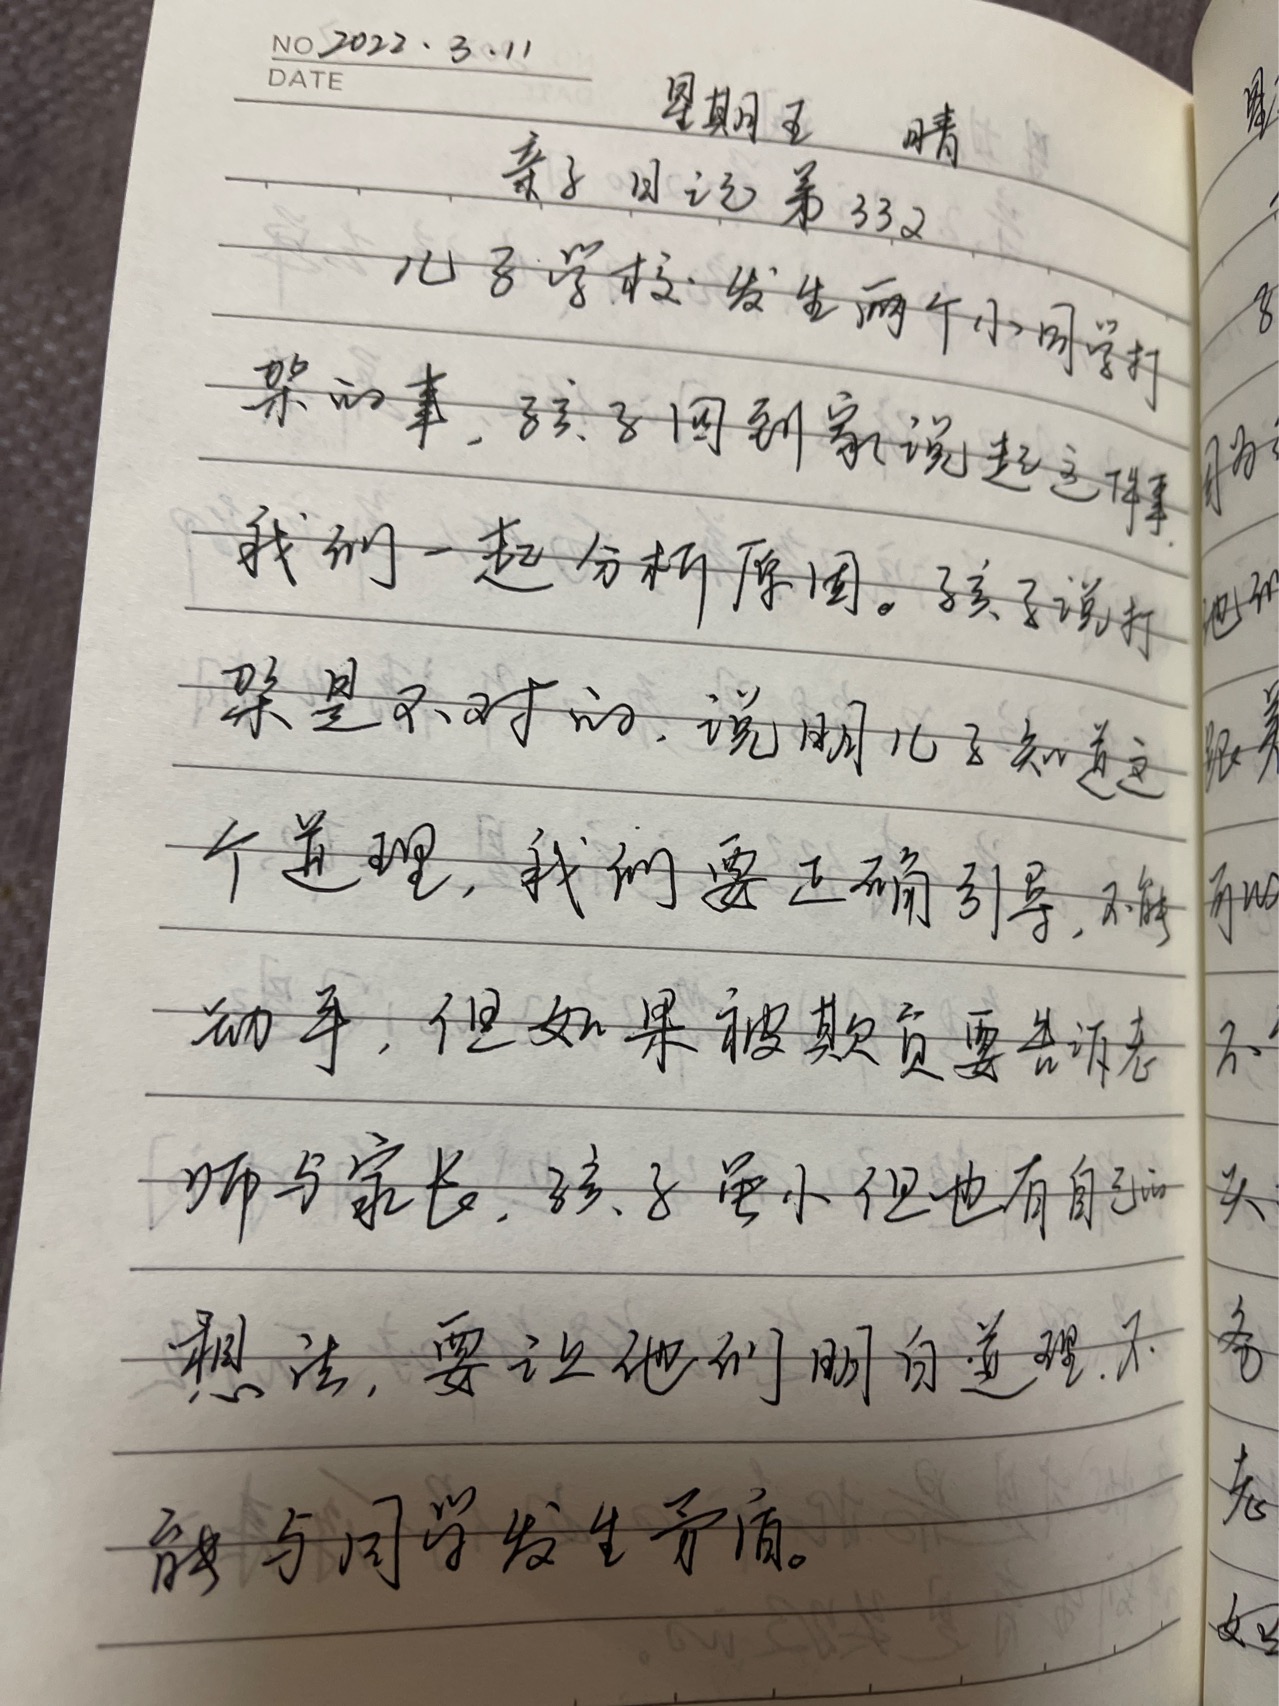 NO 2022.3.11
DATE
星期五 晴
亲子日记第332
儿子学校发生两个小同学打
架的事,孩子回到家说起这件事.
我们一起分析原因。孩子说打
架是不对的,说明儿子知道这
个道理,我们要正确引导,不能
动手,但如果被欺负要告诉老
师与家长,孩子虽小但也有自己的
想法,要让他们明白道理.不
能与同学发生矛盾。